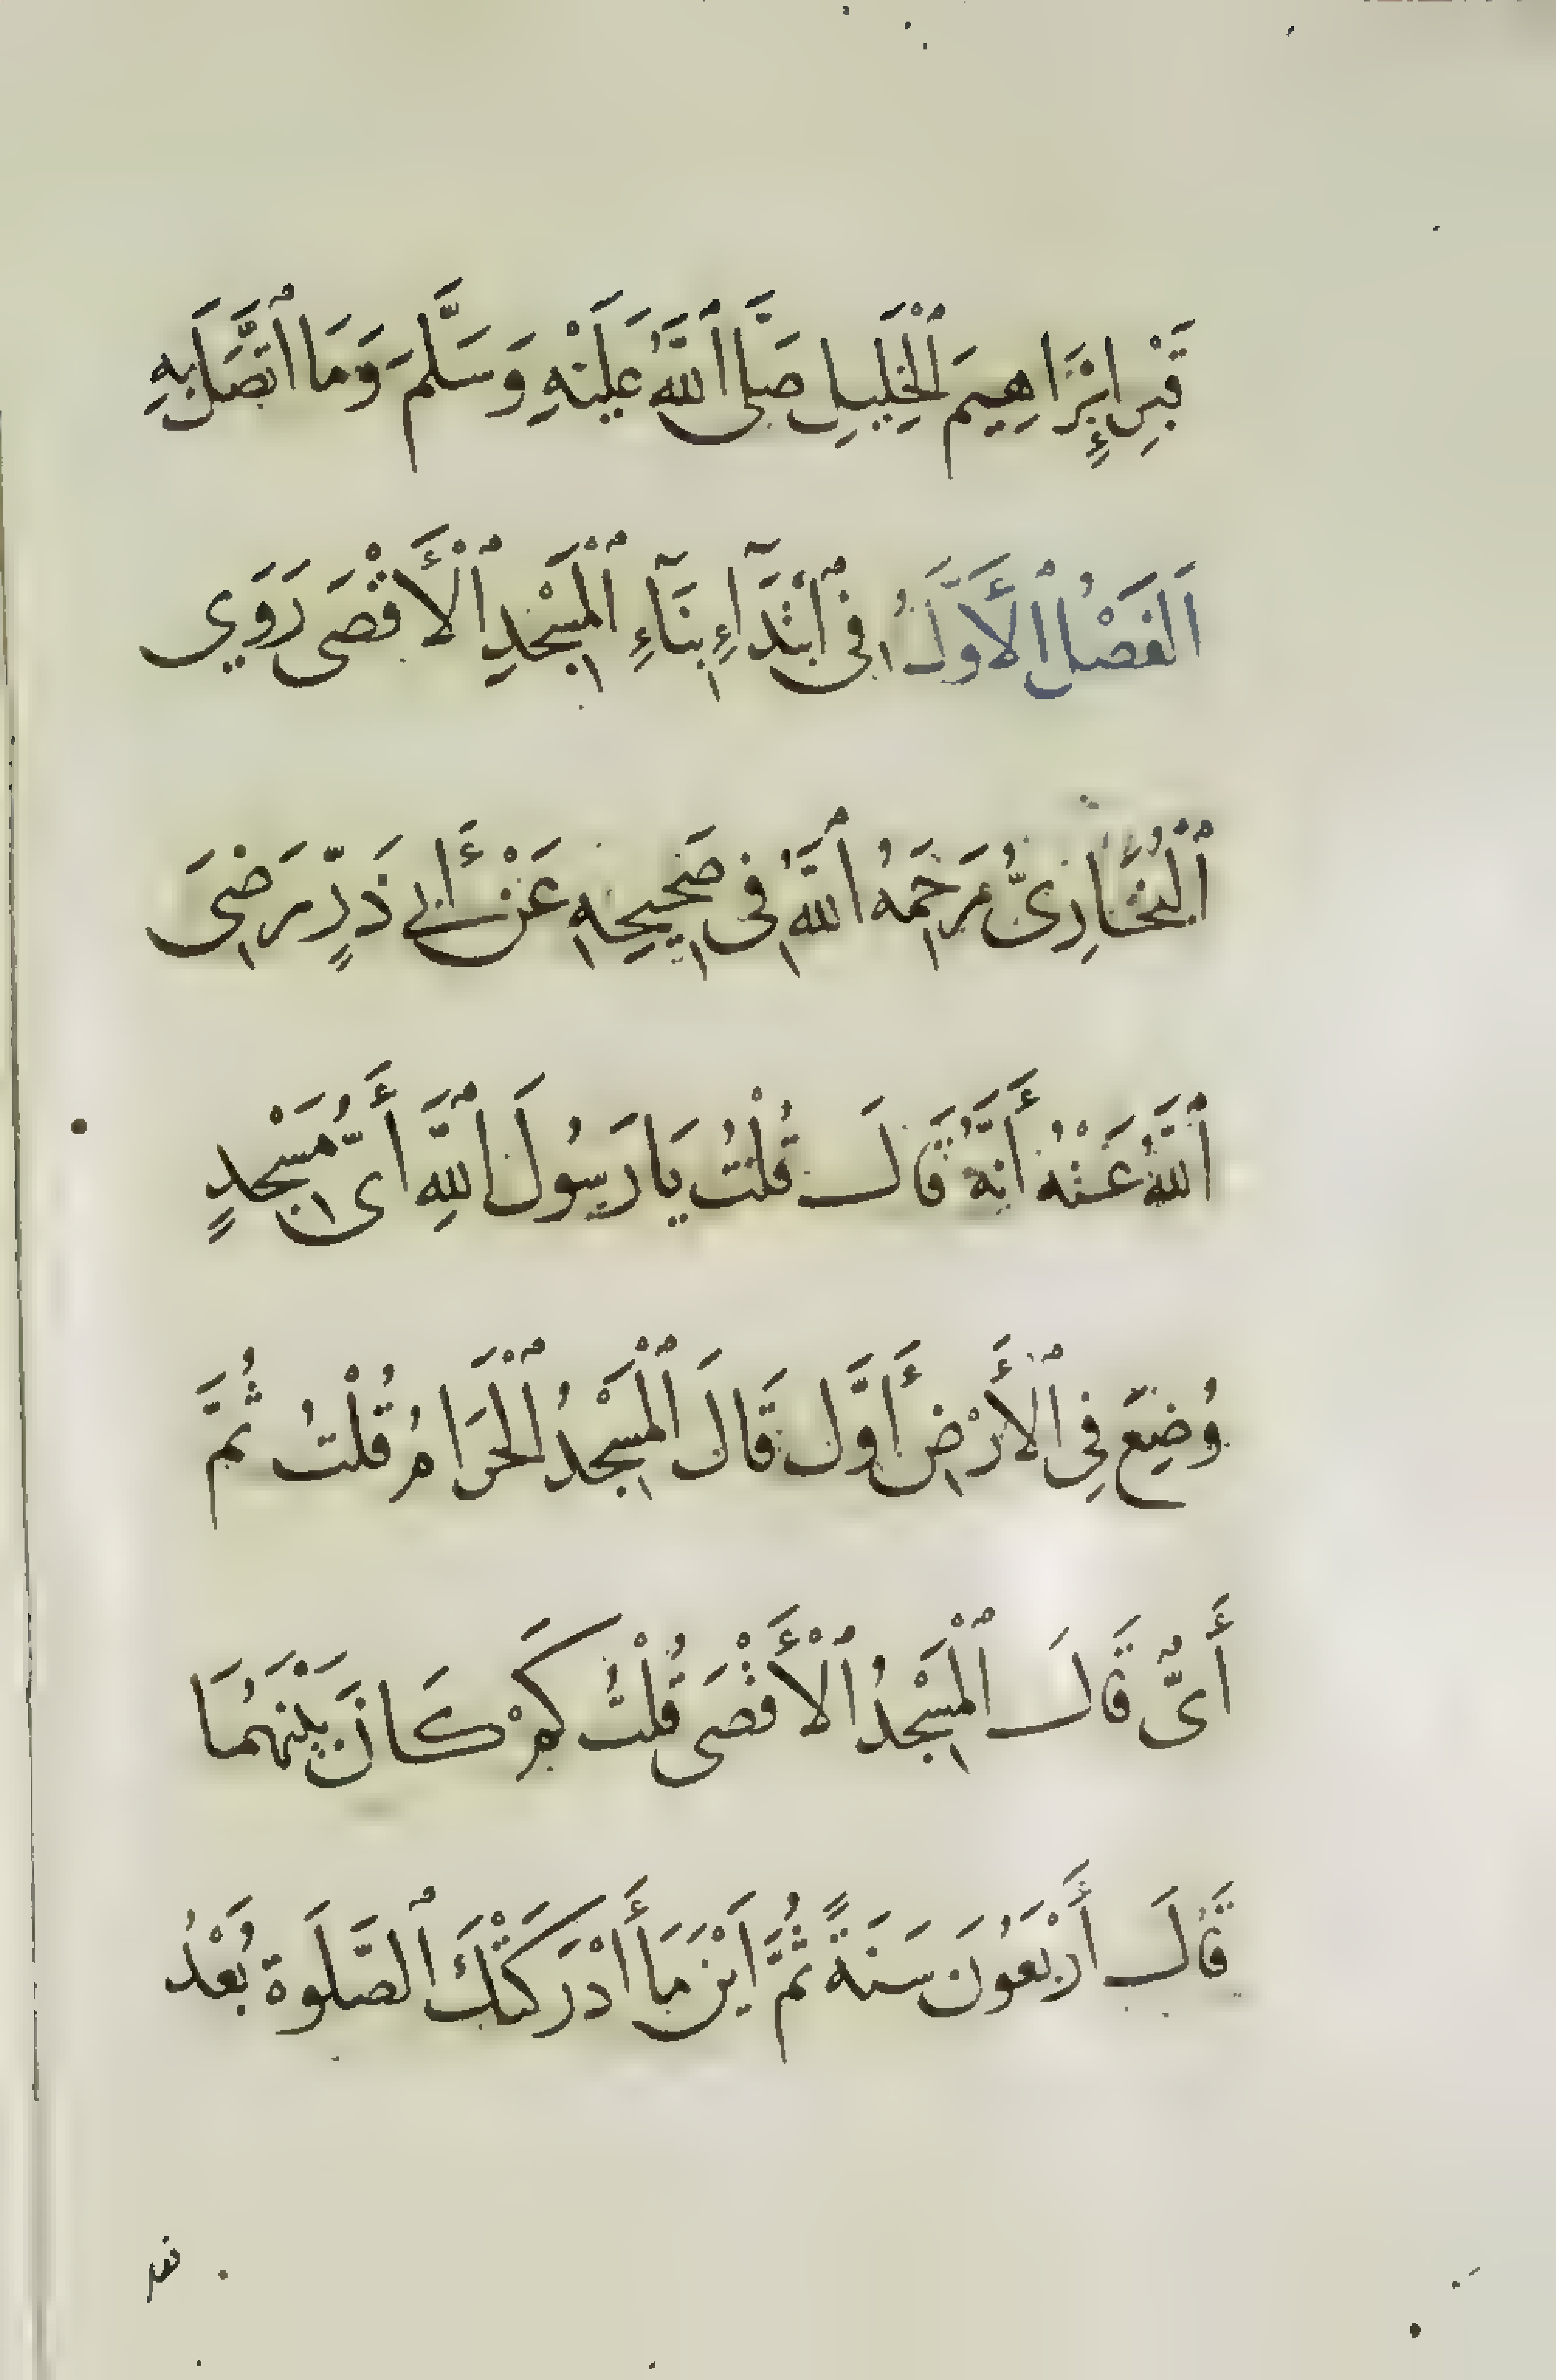 قَبْرِ إِبْرَاهِيمَ ٱلْخَلِيلِ صَلَّى ٱللَّهُ عَلَيْهِ وَسَلَّمَ وَمَا ٱتَّصَلَ بِهِ
اَلْفَصْلُ ٱلْأَوَّلُ فِى ٱبْتِدَآءِ بِنَآءِ ٱلْمَسْجِدِ ٱلْأَقْصَى رَوَي
ٱلْبُخَارِىُّ رَحِمَهُ ٱللَّهُ فِى صَحِيحِهِ عَنْ أَبِى ذَرٍّ رَضِىَ
ٱللَّهُ عَنْهُ أَنَّهُ قَالَ قُلْتُ يَا رَسُولَ ٱللَّهِ أَىُّ مَسْجِدٍ
وُضِعَ فِى ٱلْأَرْضِ أَوَّل قَالَ ٱلْمَسْجِدُ ٱلْحَرَامُ قُلْتُ ثُمَّ
أَىٌّ قَالَ ٱلْمَسْجِدُ ٱلْأَقْصَى قُلْتُ كَمْ كَانَ بَيْنَهُمَا
قَالَ أَرْبَعُونَ سَنَةً ثُمَّ اَيْنَمَا أَدْرَكَتْكَ ٱلصَّلَوة بَعْدُ